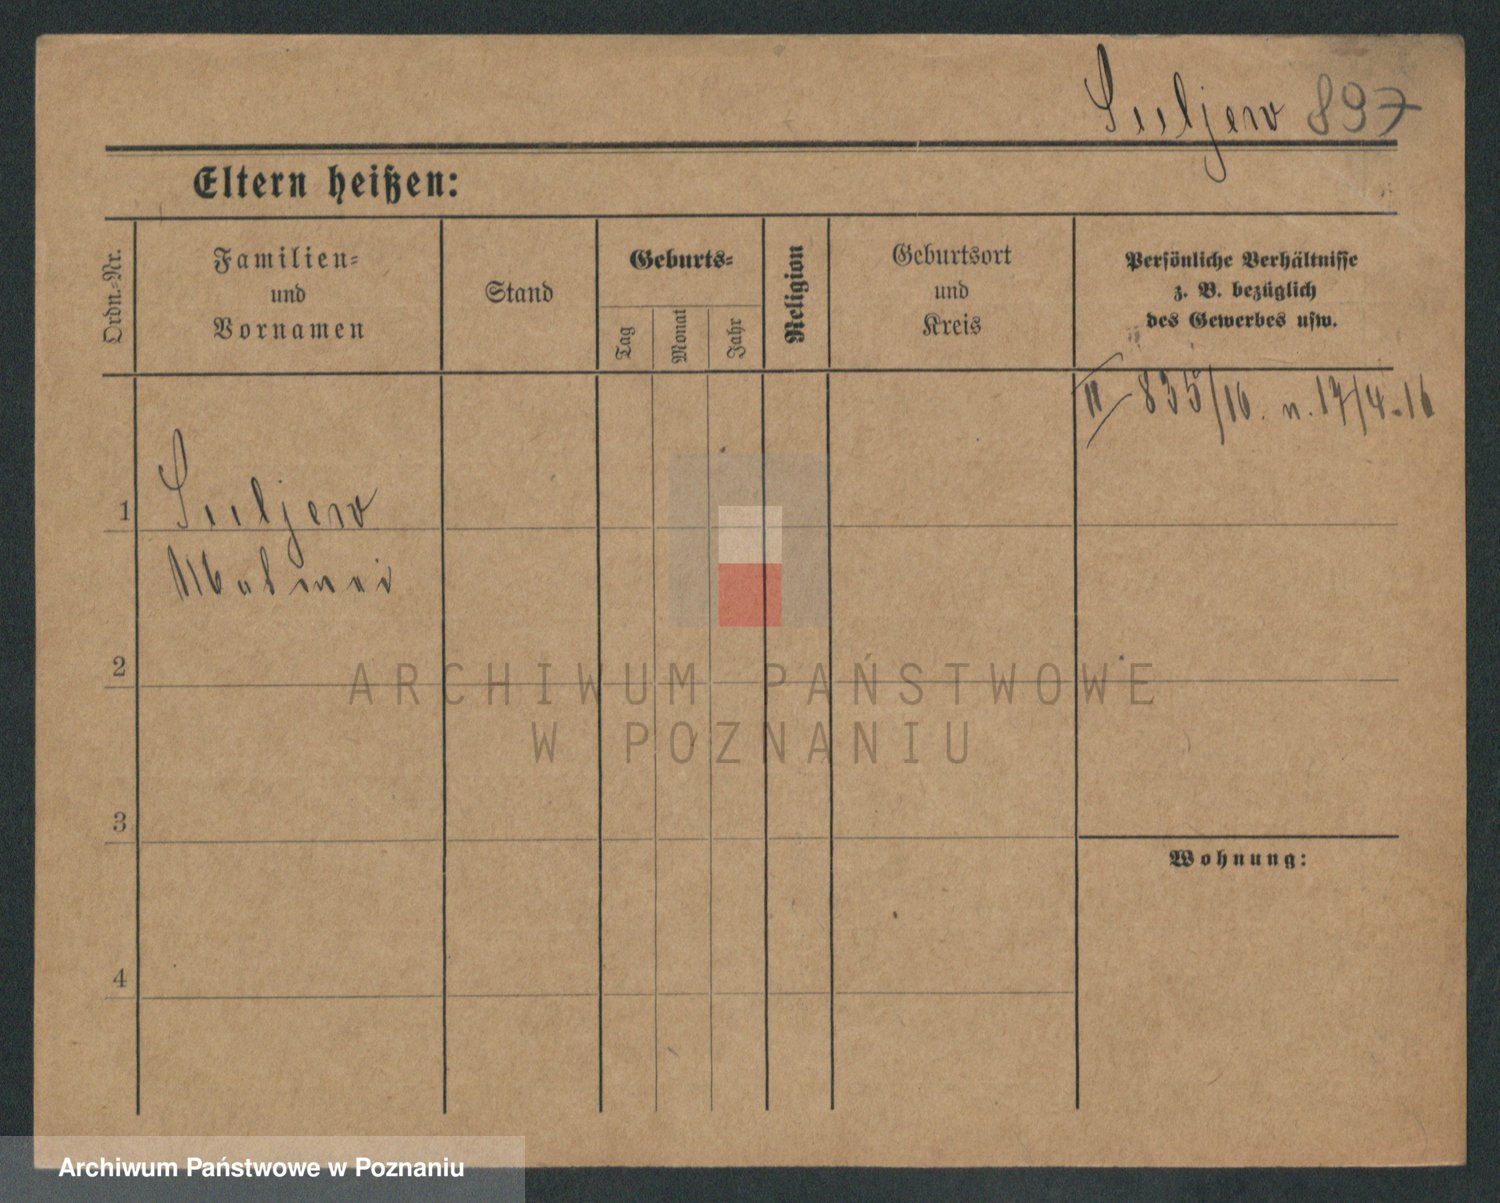 Suljew 897
Eltern heißen:
Ordn.-Nr.
Familien=
und
Vornamen
Stand
Geburts=
Tag
Monat
Jahr
Religion
Geburtsort
und
Kreis
Persönliche Verhältnisse
z. B. bezüglich
des Gewerbes usw.
II 835/16. n. 17/4.16
1
Suljew
2
3
4
Wohnung:
ARCHIWUM PAŃSTWOWE
W POZNANIU
Archiwum Państwowe w Poznaniu